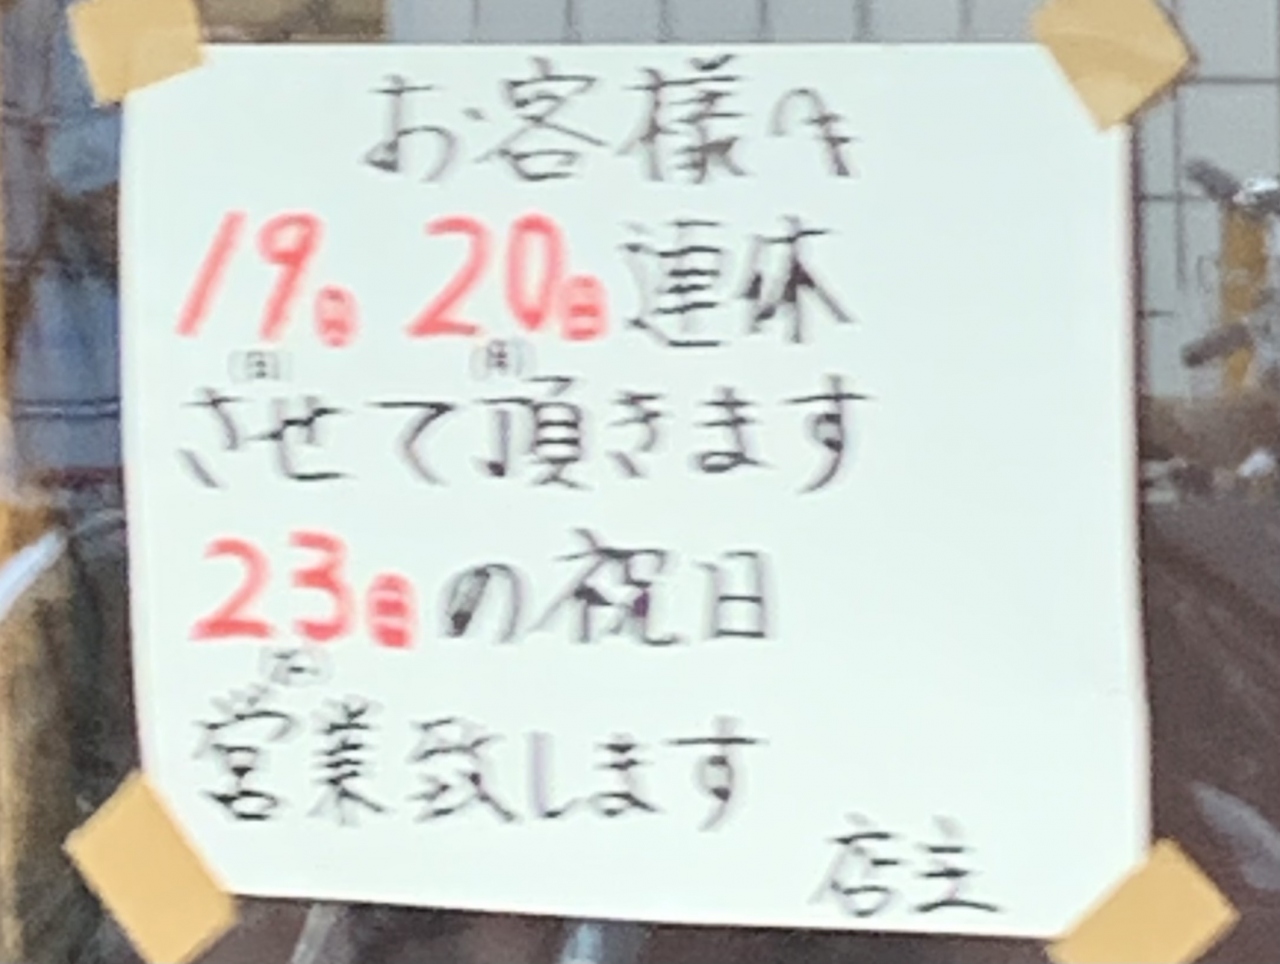 お客様へ
19日 20日連休
(日) (月)
させて頂きます
23日の祝日
営業致します
店主